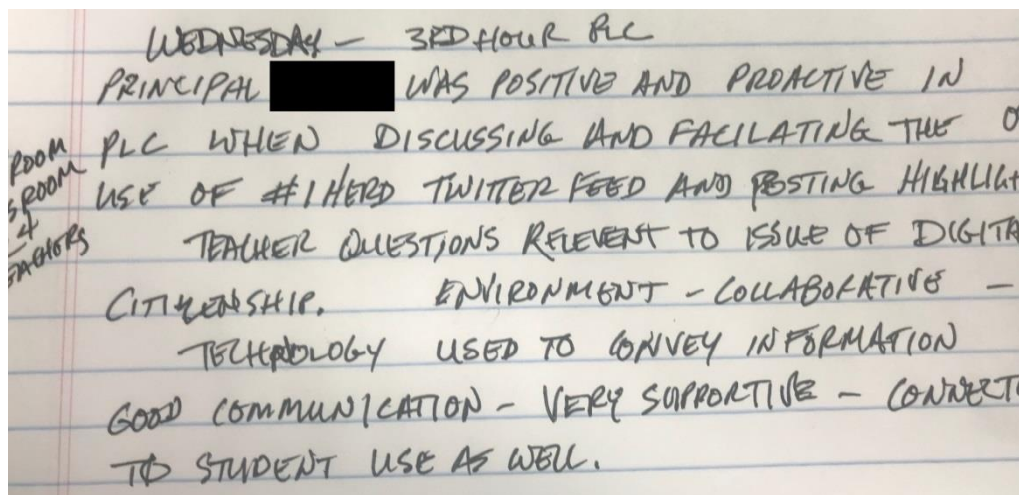 WEDNESDAY - 3RD HOUR PLC
PRINCIPAL WAS POSITIVE AND PROACTIVE IN
PLC WHEN DISCUSSING AND FACILATING THE
USE OF #1HERD TWITTER FEED AND POSTING HIGHLIGH
TEACHER QUESTIONS RELEVENT TO ISSUE OF DIGITA
CITIZENSHIP. ENVIRONMENT - COLLABORATIVE -
TECHNOLOGY USED TO CONVEY INFORMATION
GOOD COMMUNICATION - VERY SUPPORTIVE - CONNECT
TO STUDENT USE AS WELL.
ROOM
ROOM
4